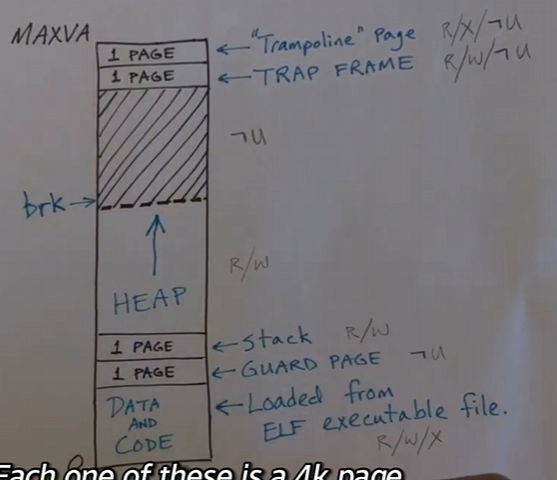 MAXVA
1 PAGE ← "Trampoline" Page R/X/¬U
1 PAGE ← TRAP FRAME R/W/¬U
¬U
brk →
R/W
HEAP
1 PAGE ← Stack R/W
1 PAGE ← GUARD PAGE ¬U
DATA ← Loaded from
AND ELF executable file.
CODE R/W/X
0
Each one of these is a 4k page